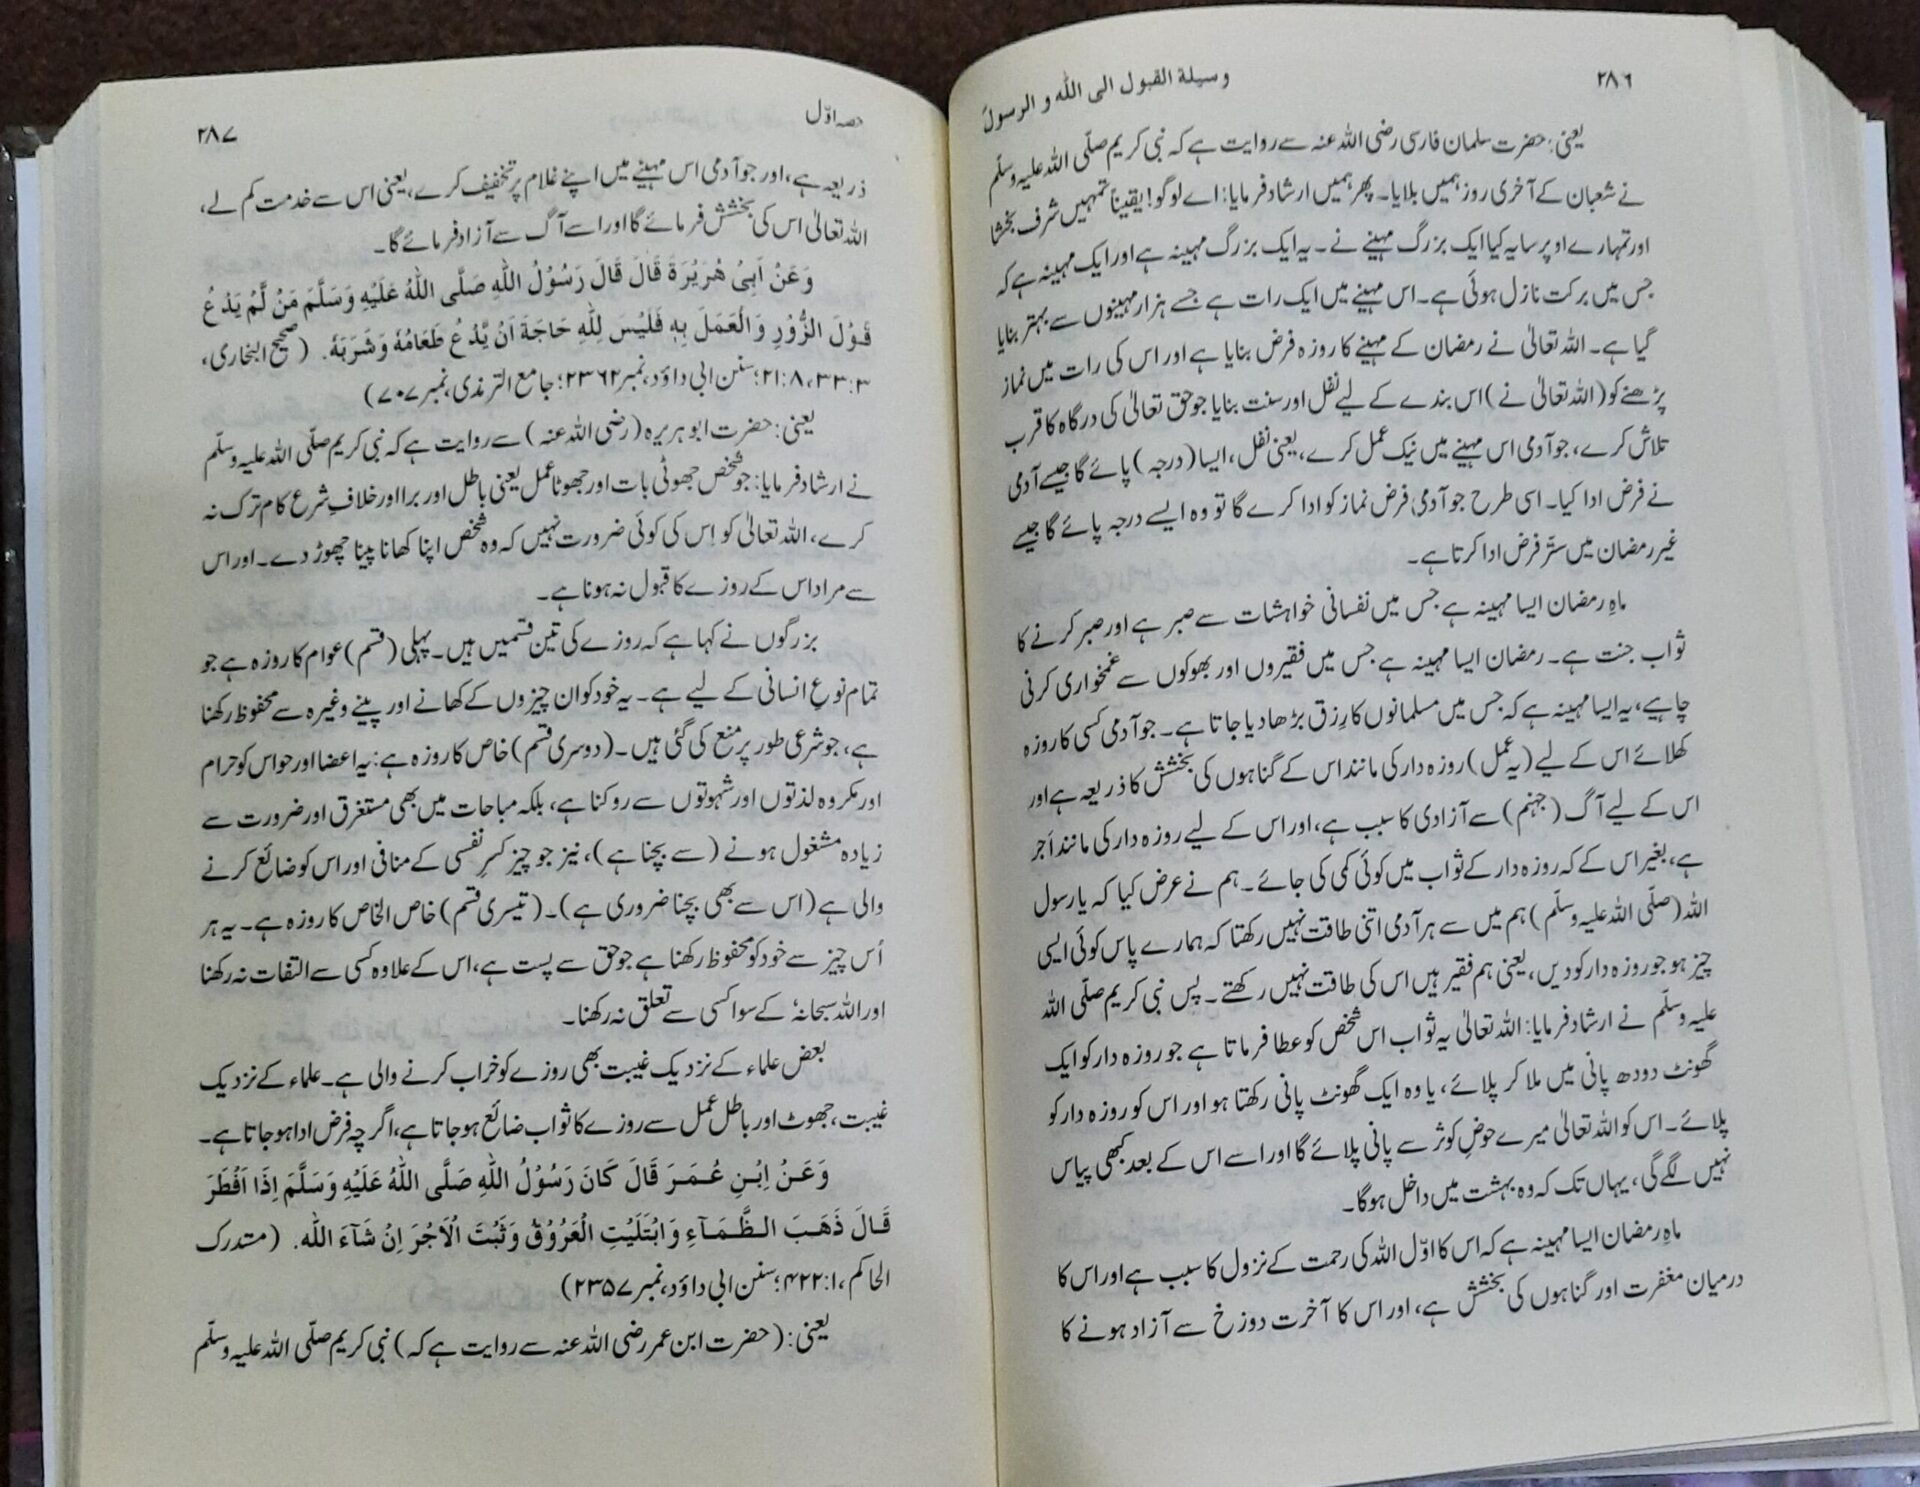 ۲۸۶
وسیلة القبول الی اللہ و الرسولؐ
یعنی: حضرت سلمان فارسی رضی اللہ عنہ سے روایت ہے کہ نبی کریم صلّی اللہ علیہ وسلّم
نے شعبان کے آخری روز ہمیں بلایا۔ پھر ہمیں ارشاد فرمایا: اے لوگو! یقیناً تمہیں شرف بخشا
اور تمہارے اوپر سایہ کیا ایک بزرگ مہینے نے۔ یہ ایک بزرگ مہینہ ہے اور ایک مہینہ ہے کہ
جس میں برکت نازل ہوئی ہے۔ اس مہینے میں ایک رات ہے جسے ہزار مہینوں سے بہتر بنایا
گیا ہے۔ اللہ تعالیٰ نے رمضان کے مہینے کا روزہ فرض بنایا ہے اور اس کی رات میں نماز
پڑھنے کو (اللہ تعالیٰ نے) اس بندے کے لیے نفل اور سنت بنایا جو حق تعالیٰ کی درگاہ کا قرب
تلاش کرے، جو آدمی اس مہینے میں نیک عمل کرے، یعنی نفل، ایسا (درجہ) پائے گا جیسے آدمی
نے فرض ادا کیا۔ اسی طرح جو آدمی فرض نماز کو ادا کرے گا تو وہ ایسے درجہ پائے گا جیسے
غیر رمضان میں ستّر فرض ادا کرتا ہے۔
ماہِ رمضان ایسا مہینہ ہے جس میں نفسانی خواہشات سے صبر ہے اور صبر کرنے کا
ثواب جنت ہے۔ رمضان ایسا مہینہ ہے جس میں فقیروں اور بھوکوں سے غمخواری کرنی
چاہیے، یہ ایسا مہینہ ہے کہ جس میں مسلمانوں کا رِزق بڑھا دیا جاتا ہے۔ جو آدمی کسی کا روزہ
کھلائے اس کے لیے (یہ عمل) روزہ دار کی مانند اس کے گناہوں کی بخشش کا ذریعہ ہے اور
اس کے لیے آگ (جہنم) سے آزادی کا سبب ہے، اور اس کے لیے روزہ دار کی مانند اَجر
ہے، بغیر اس کے کہ روزہ دار کے ثواب میں کوئی کمی کی جائے۔ ہم نے عرض کیا کہ یا رسول
اللہ (صلّی اللہ علیہ وسلّم) ہم میں سے ہر آدمی اتنی طاقت نہیں رکھتا کہ ہمارے پاس کوئی ایسی
چیز ہو جو روزہ دار کو دیں، یعنی ہم فقیر ہیں اس کی طاقت نہیں رکھتے۔ پس نبی کریم صلّی اللہ
علیہ وسلّم نے ارشاد فرمایا: اللہ تعالیٰ یہ ثواب اس شخص کو عطا فرماتا ہے جو روزہ دار کو ایک
گھونٹ دودھ پانی میں ملا کر پلائے، یا وہ ایک گھونٹ پانی رکھتا ہو اور اس کو روزہ دار کو
پلائے۔ اس کو اللہ تعالیٰ میرے حوضِ کوثر سے پانی پلائے گا اور اسے اس کے بعد کبھی پیاس
نہیں لگے گی، یہاں تک کہ وہ بہشت میں داخل ہوگا۔
ماہِ رمضان ایسا مہینہ ہے کہ اس کا اوّل اللہ کی رحمت کے نزول کا سبب ہے اور اس کا
درمیان مغفرت اور گناہوں کی بخشش ہے، اور اس کا آخرت دوزخ سے آزاد ہونے کا
حصہ اوّل
۲۸۷
ذریعہ ہے، اور جو آدمی اس مہینے میں اپنے غلام پر تخفیف کرے، یعنی اس سے خدمت کم لے،
اللہ تعالیٰ اس کی بخشش فرمائے گا اور اسے آگ سے آزاد فرمائے گا۔
وَعَنْ اَبِیْ هُرَیْرَةَ قَالَ قَالَ رَسُوْلُ اللّٰهِ صَلَّی اللّٰهُ عَلَیْهِ وَسَلَّمَ مَنْ لَّمْ یَدْعُ
قَوْلَ الزُّوْرِ وَالْعَمَلَ بِهٖ فَلَیْسَ لِلّٰهِ حَاجَةَ اَنْ یَّدْعُ طَعَامُهٗ وَشَرَبَهٗ. (صحیح البخاری،
۳:۳۳، ۸:۲۱؛ سنن ابی داؤد، نمبر ۲۳۶۲؛ جامع الترمذی، نمبر ۷۰۷)
یعنی: حضرت ابو ہریرہ (رضی اللہ عنہ) سے روایت ہے کہ نبی کریم صلّی اللہ علیہ وسلّم
نے ارشاد فرمایا: جو شخص جھوٹی بات اور جھوٹا عمل یعنی باطل اور برا اور خلافِ شرع کام ترک نہ
کرے، اللہ تعالیٰ کو اِس کی کوئی ضرورت نہیں کہ وہ شخص اپنا کھانا پینا چھوڑ دے۔ اور اس
سے مراد اس کے روزے کا قبول نہ ہونا ہے۔
بزرگوں نے کہا ہے کہ روزے کی تین قسمیں ہیں۔ پہلی (قسم) عوام کا روزہ ہے جو
تمام نوعِ انسانی کے لیے ہے۔ یہ خود کو ان چیزوں کے کھانے اور پینے وغیرہ سے محفوظ رکھنا
ہے، جو شرعی طور پر منع کی گئی ہیں۔ (دوسری قسم) خاص کا روزہ ہے: یہ اعضا اور حواس کو حرام
اور مکروہ لذتوں اور شہوتوں سے روکنا ہے، بلکہ مباحات میں بھی مستغرق اور ضرورت سے
زیادہ مشغول ہونے (سے بچنا ہے)، نیز جو چیز کسرِ نفسی کے منافی اور اس کو ضائع کرنے
والی ہے (اس سے بھی بچنا ضروری ہے)۔ (تیسری قسم) خاص الخاص کا روزہ ہے۔ یہ ہر
اُس چیز سے خود کو محفوظ رکھنا ہے جو حق سے پست ہے، اس کے علاوہ کسی سے التفات نہ رکھنا
اور اللہ سبحانہٗ کے سوا کسی سے تعلق نہ رکھنا۔
بعض علماء کے نزدیک غیبت بھی روزے کو خراب کرنے والی ہے۔ علماء کے نزدیک
غیبت، جھوٹ اور باطل عمل سے روزے کا ثواب ضائع ہو جاتا ہے، اگرچہ فرض ادا ہو جاتا ہے۔
وَعَنْ اِبْنِ عُمَرَ قَالَ کَانَ رَسُوْلُ اللّٰهِ صَلَّی اللّٰهُ عَلَیْهِ وَسَلَّمَ اِذَا اَفْطَرَ
قَالَ ذَهَبَ الظَّمَآءِ وَابْتَلَیْتِ الْعَرُوْقُ وَثَبْتَ الْاَجْرَ اِنْ شَآءَ اللّٰه. (مستدرک
الحاکم، ۱:۴۲۲؛ سنن ابی داؤد، نمبر ۲۳۵۷)
یعنی: (حضرت ابن عمر رضی اللہ عنہ سے روایت ہے کہ) نبی کریم صلّی اللہ علیہ وسلّم